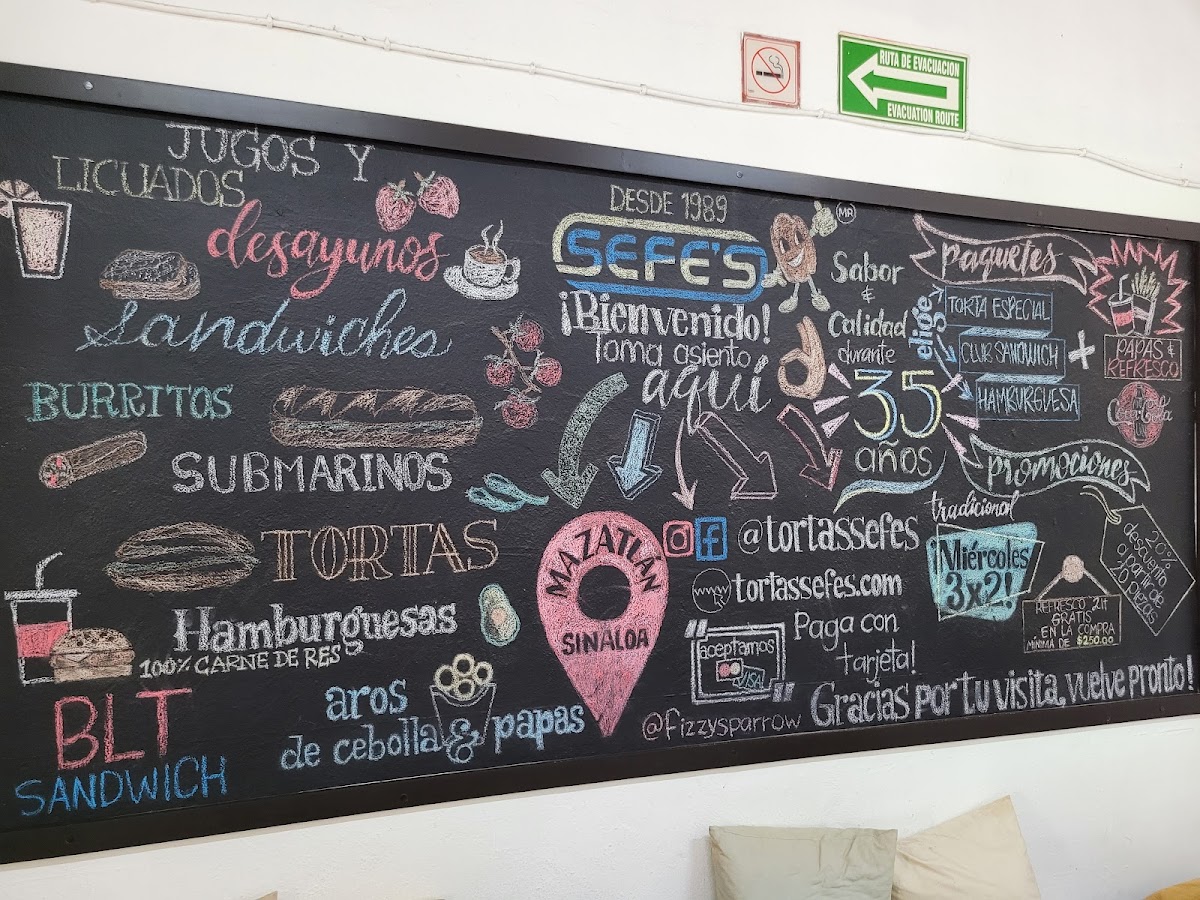 RUTA DE EVACUACION
EVACUATION ROUTE
JUGOS Y
LICUADOS
desayunos
Sandwiches
BURRITOS
SUBMARINOS
TORTAS
Hamburguesas
100% CARNE DE RES
BLT
SANDWICH
aros
de cebolla & papas
DESDE 1989
SEFE'S
MR
¡Bienvenido!
Toma asiento
aquí
MAZATLÁN
SINALOA
Sabor
&
Calidad
durante
35
años
@tortassefes
www
tortassefes.com
"aceptamos
VISA!"
Paga con
tarjeta!
@fizzysparrow
paquetes
elige
TORTA ESPECIAL
CLUB SANDWICH
HAMBURGUESA
+
PAPAS &
REFRESCO
Coca-Cola
promociones
tradicional
¡Miércoles
3x2!
REFRESCO 2lt
GRATIS
EN LA COMPRA
MÍNIMA DE $250.00
20%
descuento
a partir de
20 piezas
Gracias por tu visita, vuelve pronto!